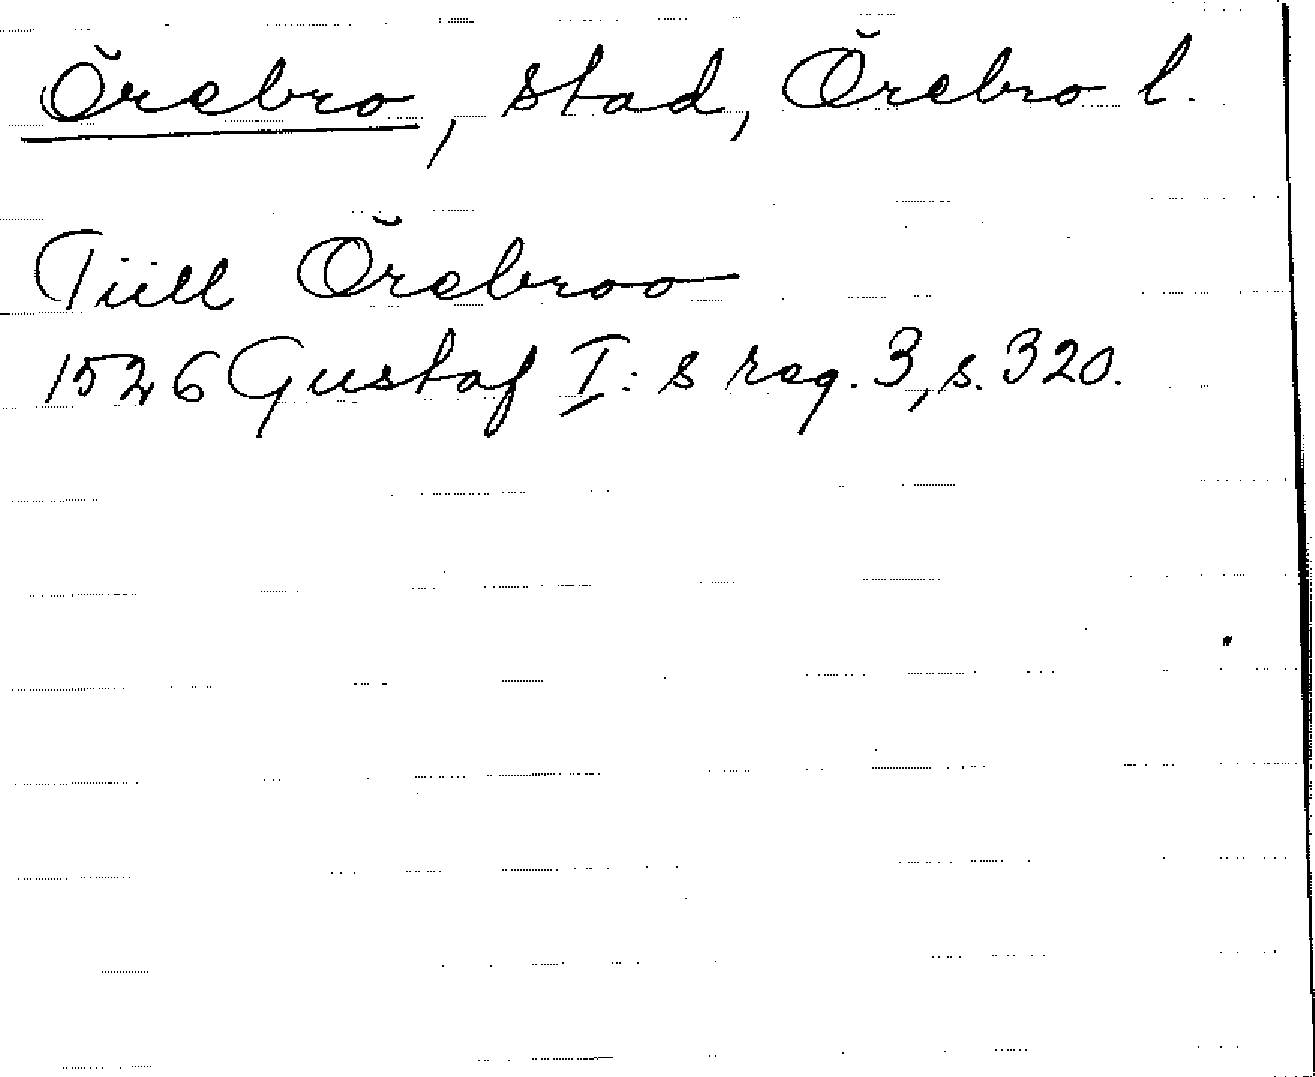 Örebro, stad, Örebro l.
Tiill Örebroo
1526 Gustaf I:s reg. 3, s. 320.